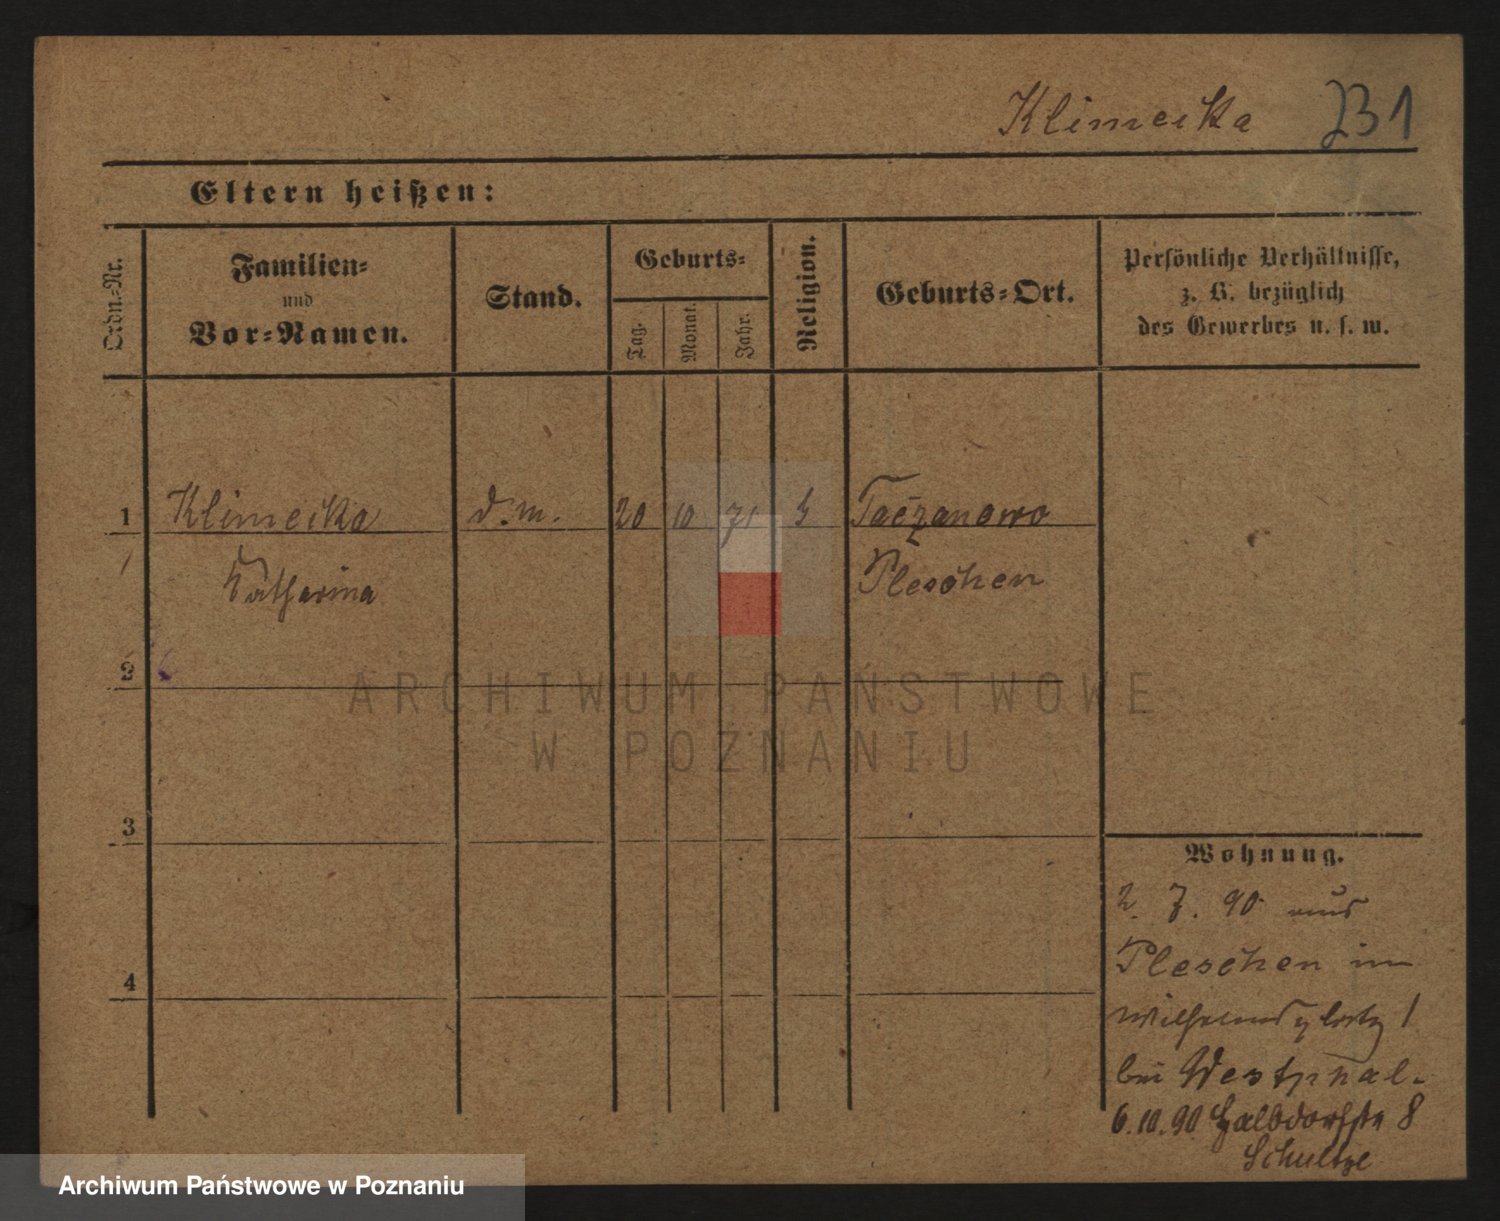 Klimecka 231
Eltern heißen:
Ordn.-Nr.
Familien-
und
Vor-Namen.
Stand.
Geburts-
Tag.
Monat.
Jahr.
Religion.
Geburts-Ort.
Persönliche Verhältnisse,
z. B. bezüglich
des Gewerbes u. s. w.
1 Klimecka d. m. 20 10 71 Taczanowo
Catharina Pleschen
2
ARCHIWUM PAŃSTWOWE
W POZNANIU
3
Wohnung.
2. 7. 90 aus
Pleschen im
4
Wilhelmsplatz 1
bei Westphal.
6.10.90 Halbdorfstr 8
Schultze
Archiwum Państwowe w Poznaniu